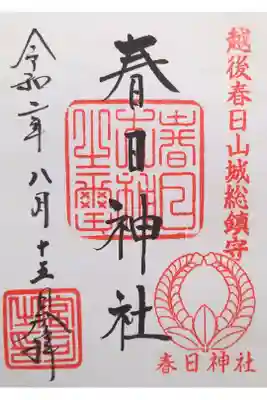 越後春日山城総鎮守
春日神社
春日神社
令和二年八月十五日奉拝